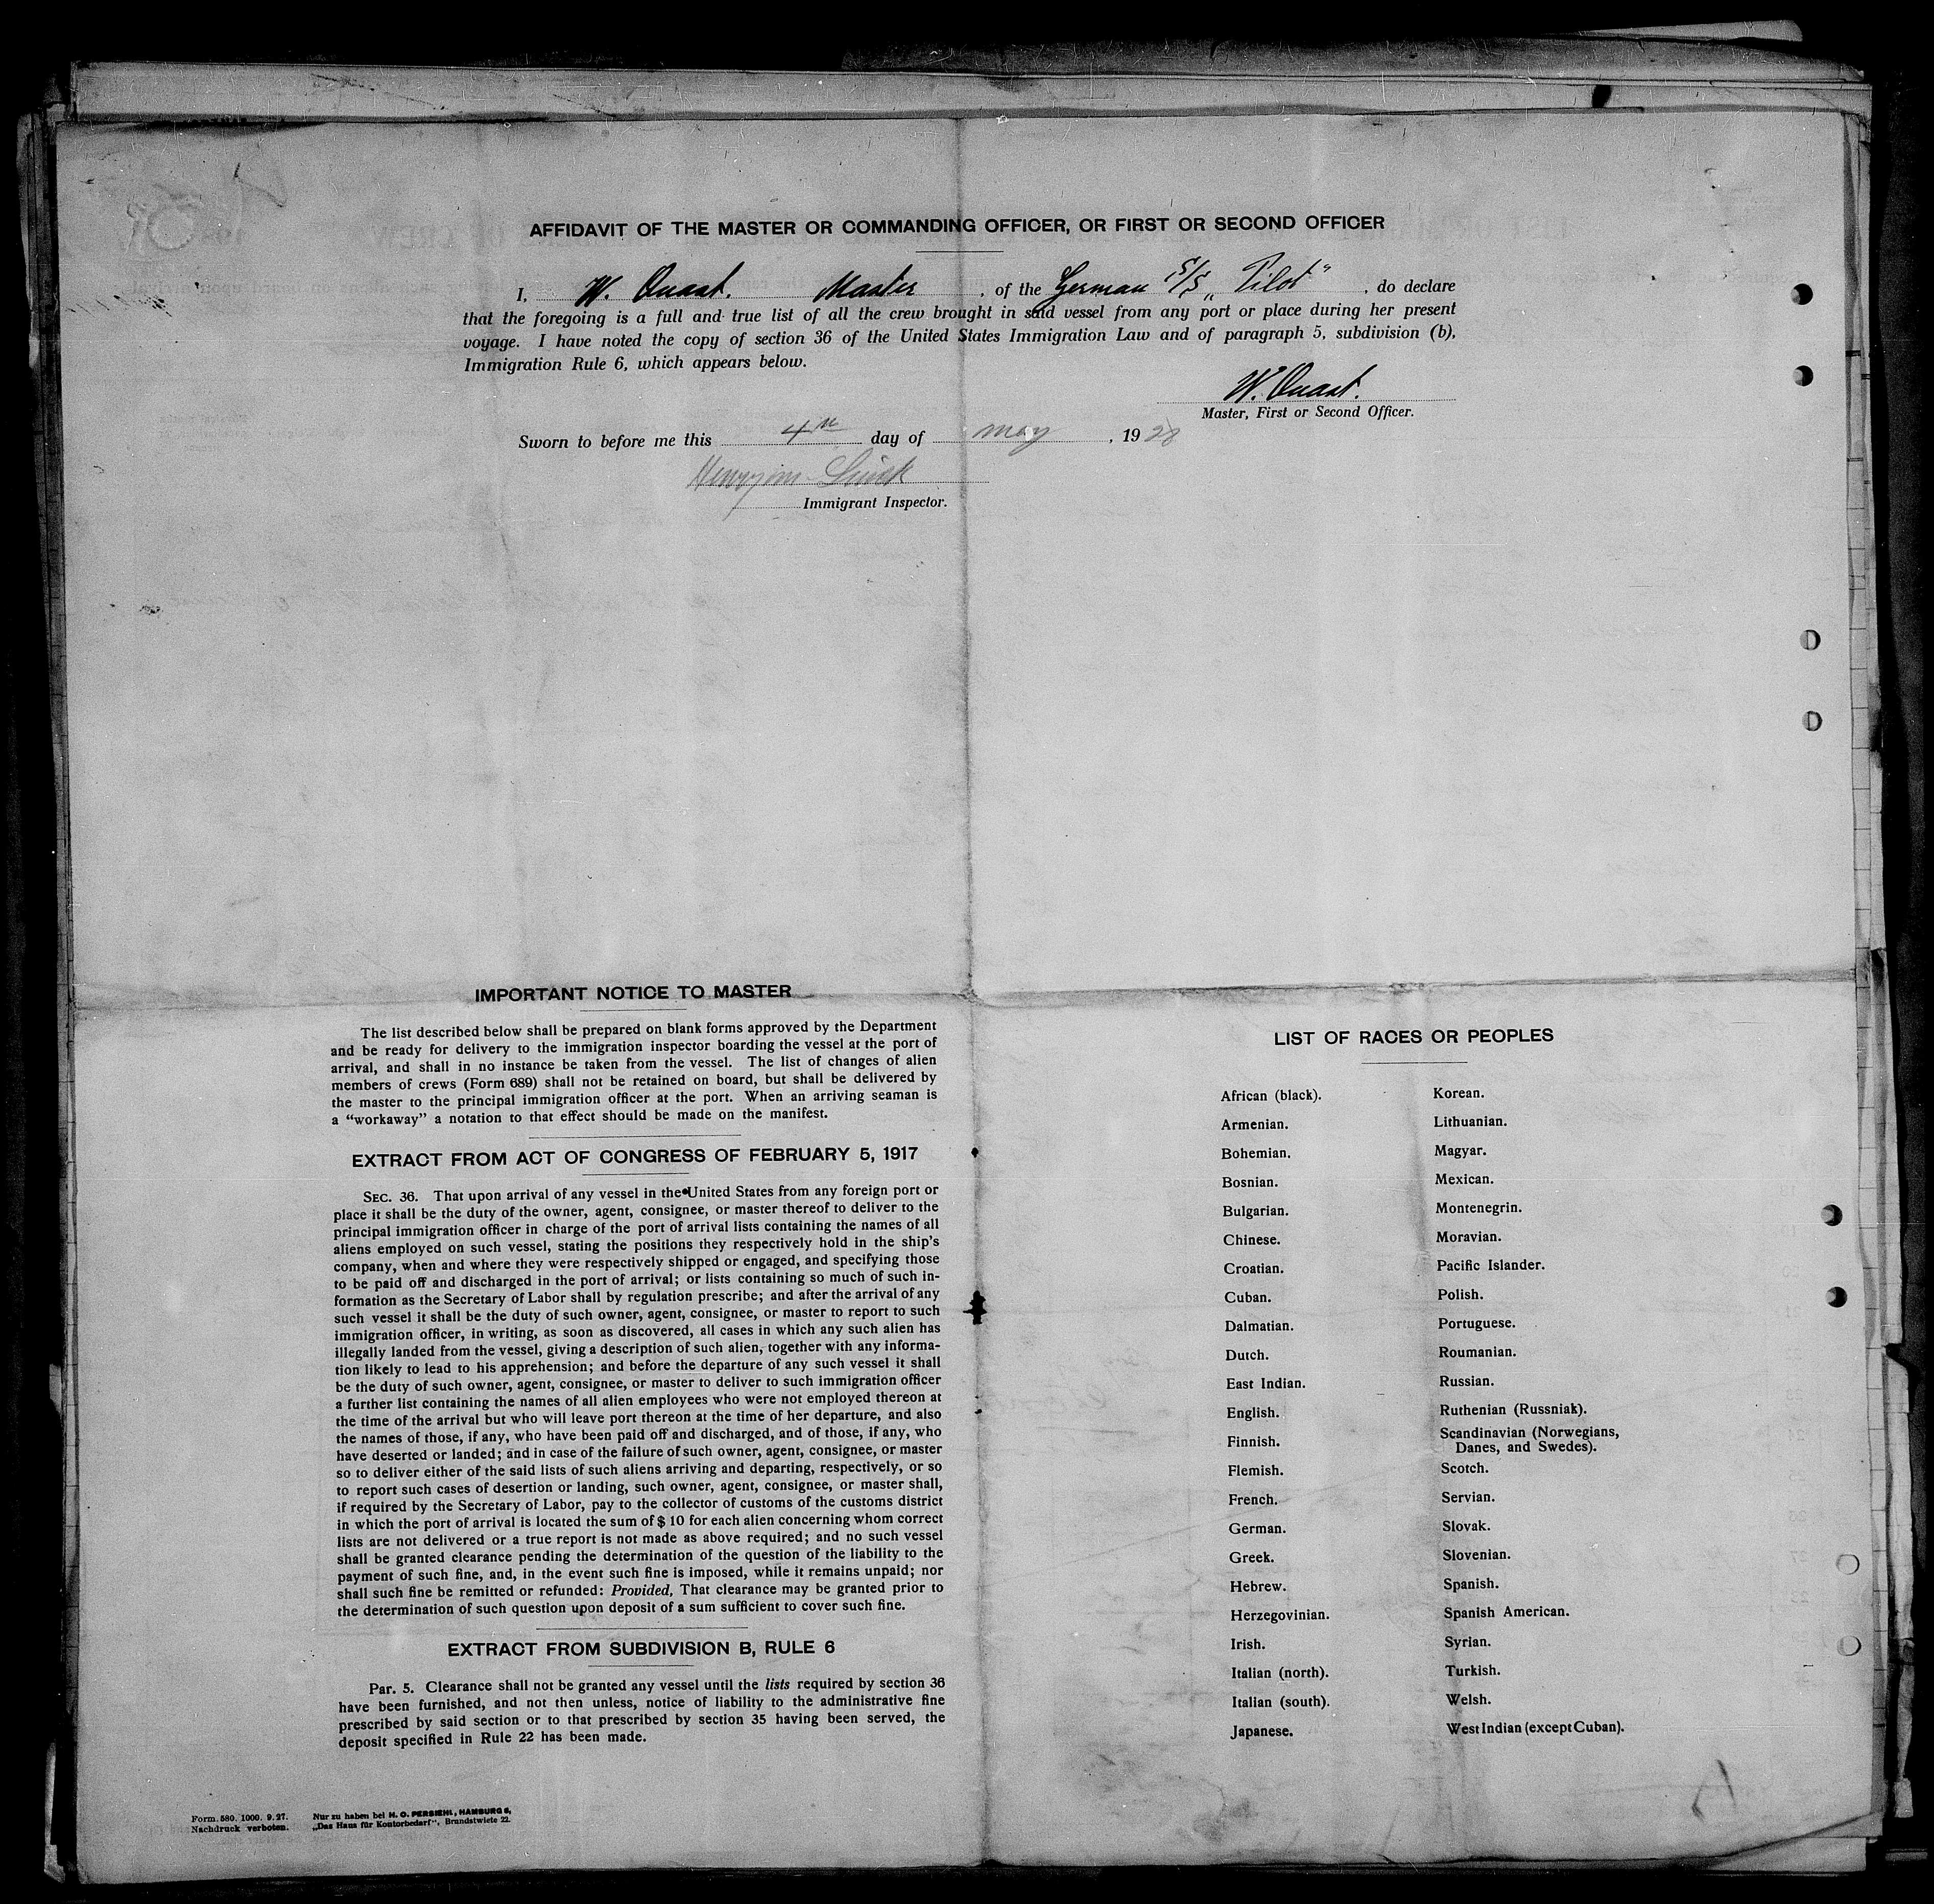 AFFIDAVIT OF THE MASTER OR COMMANDING OFFICER, OR FIRST OR SECOND OFFICER
I, W. Quast. Master , of the German S/S „Pilot" , do declare
that the foregoing is a full and true list of all the crew brought in said vessel from any port or place during her present
voyage. I have noted the copy of section 36 of the United States Immigration Law and of paragraph 5, subdivision (b),
Immigration Rule 6, which appears below.
W. Quast.
Master, First or Second Officer.
Sworn to before me this 4th day of May , 1928
Immigrant Inspector.
IMPORTANT NOTICE TO MASTER
The list described below shall be prepared on blank forms approved by the Department
and be ready for delivery to the immigration inspector boarding the vessel at the port of
arrival, and shall in no instance be taken from the vessel. The list of changes of alien
members of crews (Form 689) shall not be retained on board, but shall be delivered by
the master to the principal immigration officer at the port. When an arriving seaman is
a “workaway” a notation to that effect should be made on the manifest.
EXTRACT FROM ACT OF CONGRESS OF FEBRUARY 5, 1917
SEC. 36. That upon arrival of any vessel in the United States from any foreign port or
place it shall be the duty of the owner, agent, consignee, or master thereof to deliver to the
principal immigration officer in charge of the port of arrival lists containing the names of all
aliens employed on such vessel, stating the positions they respectively hold in the ship's
company, when and where they were respectively shipped or engaged, and specifying those
to be paid off and discharged in the port of arrival; or lists containing so much of such in-
formation as the Secretary of Labor shall by regulation prescribe; and after the arrival of any
such vessel it shall be the duty of such owner, agent, consignee, or master to report to such
immigration officer, in writing, as soon as discovered, all cases in which any such alien has
illegally landed from the vessel, giving a description of such alien, together with any informa-
tion likely to lead to his apprehension; and before the departure of any such vessel it shall
be the duty of such owner, agent, consignee, or master to deliver to such immigration officer
a further list containing the names of all alien employees who were not employed thereon at
the time of the arrival but who will leave port thereon at the time of her departure, and also
the names of those, if any, who have been paid off and discharged, and of those, if any, who
have deserted or landed; and in case of the failure of such owner, agent, consignee, or master
so to deliver either of the said lists of such aliens arriving and departing, respectively, or so
to report such cases of desertion or landing, such owner, agent, consignee, or master shall,
if required by the Secretary of Labor, pay to the collector of customs of the customs district
in which the port of arrival is located the sum of $ 10 for each alien concerning whom correct
lists are not delivered or a true report is not made as above required; and no such vessel
shall be granted clearance pending the determination of the question of the liability to the
payment of such fine, and, in the event such fine is imposed, while it remains unpaid; nor
shall such fine be remitted or refunded: Provided, That clearance may be granted prior to
the determination of such question upon deposit of a sum sufficient to cover such fine.
EXTRACT FROM SUBDIVISION B, RULE 6
Par. 5. Clearance shall not be granted any vessel until the lists required by section 36
have been furnished, and not then unless, notice of liability to the administrative fine
prescribed by said section or to that prescribed by section 35 having been served, the
deposit specified in Rule 22 has been made.
Form. 580. 1000. 9. 27.
Nachdruck verboten.
Nur zu haben bei H. O. PERSIEHL, HAMBURG 8,
„Das Haus für Kontorbedarf“, Brandstwiete 22.
LIST OF RACES OR PEOPLES
African (black).
Armenian.
Bohemian.
Bosnian.
Bulgarian.
Chinese.
Croatian.
Cuban.
Dalmatian.
Dutch.
East Indian.
English.
Finnish.
Flemish.
French.
German.
Greek.
Hebrew.
Herzegovinian.
Irish.
Italian (north).
Italian (south).
Japanese.
Korean.
Lithuanian.
Magyar.
Mexican.
Montenegrin.
Moravian.
Pacific Islander.
Polish.
Portuguese.
Roumanian.
Russian.
Ruthenian (Russniak).
Scandinavian (Norwegians,
Danes, and Swedes).
Scotch.
Servian.
Slovak.
Slovenian.
Spanish.
Spanish American.
Syrian.
Turkish.
Welsh.
West Indian (except Cuban).